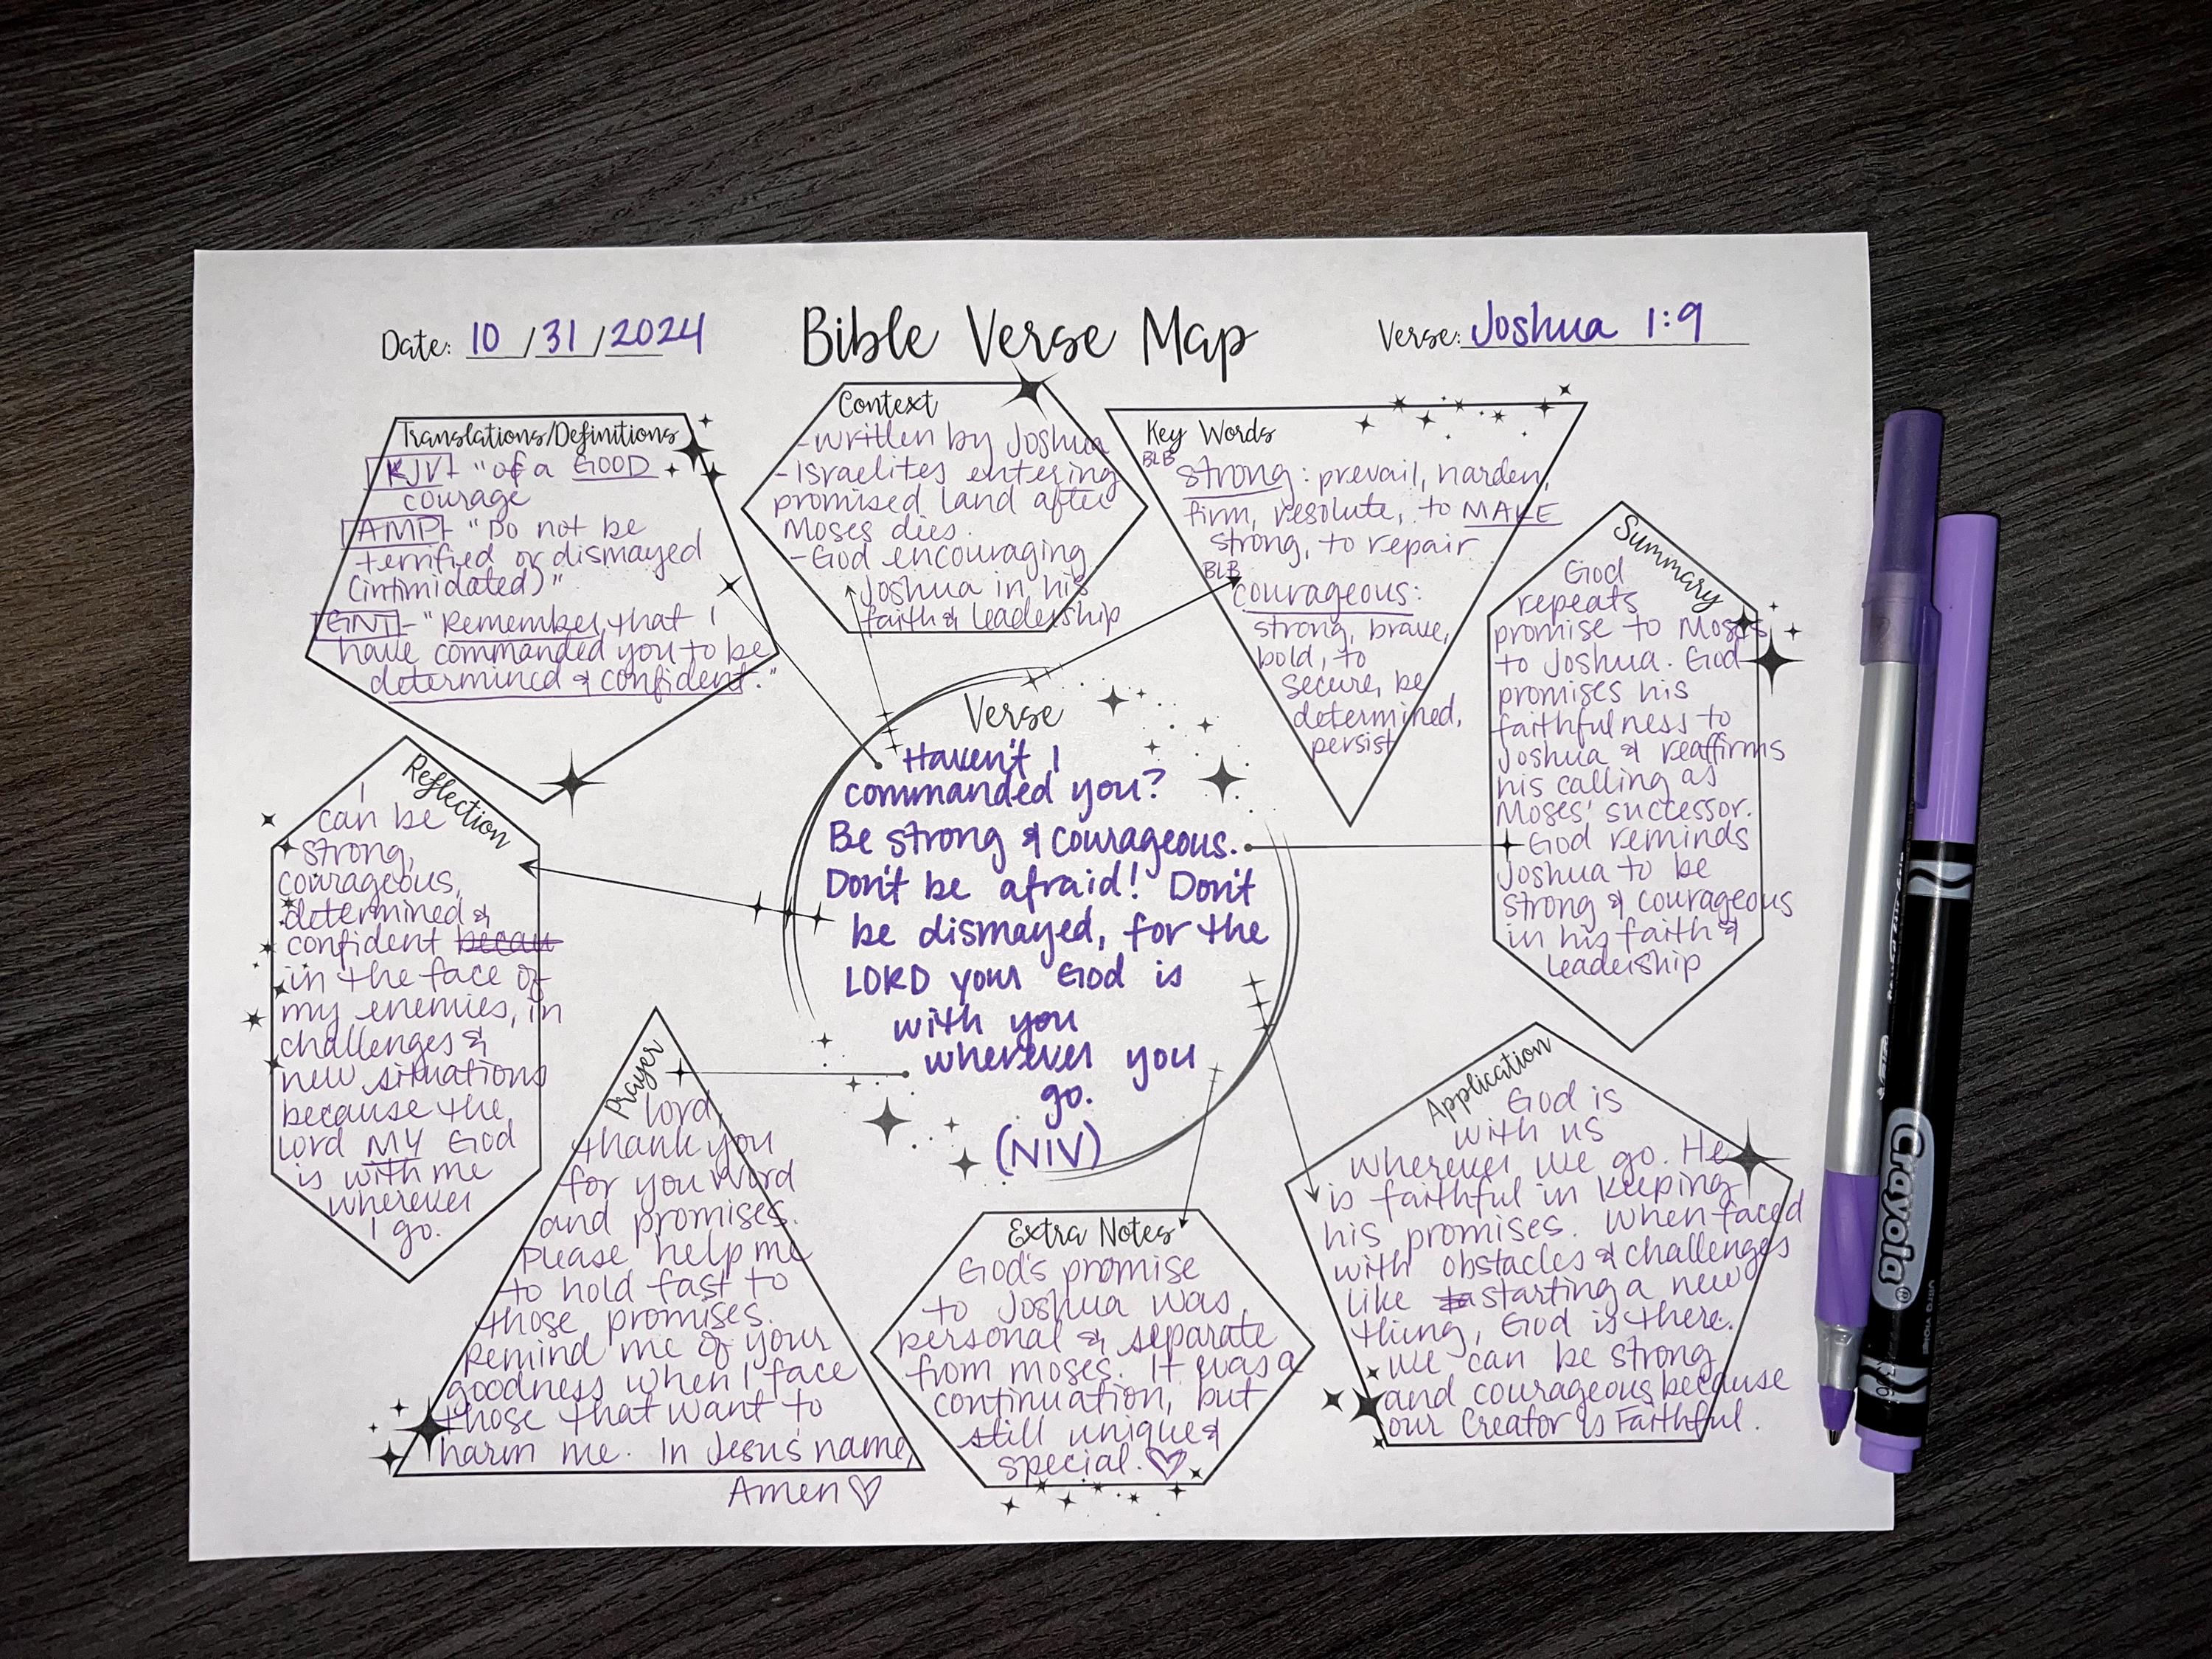 Date: 10 / 31 / 2024
Bible Verse Map
Verse: Joshua 1:9
Translations/Definitions
KJV- "of a GOOD
courage
AMP- "Do not be
terrified or dismayed
(intimidated)"
GNT- "Remember, that I
have commanded you to be
determined & confident."
Context
-written by Joshua
-Israelites entering
promised land after
Moses dies.
-God encouraging
Joshua in his
faith & leadership
Key Words
BLB
strong: prevail, harden,
firm, resolute, to MAKE
strong, to repair
BLB
courageous:
strong, brave,
bold, to
secure, be
determined,
persist
Summary
God
repeats
promise to Moses
to Joshua. God
promises his
faithfulness to
Joshua & reaffirms
his calling as
Moses' successor.
God reminds
Joshua to be
strong & courageous
in his faith &
leadership
Verse
Haven't I
commanded you?
Be strong & courageous.
Don't be afraid! Don't
be dismayed, for the
LORD your God is
with you
wherever you
go.
(NIV)
Reflection
I
can be
strong,
courageous,
determined &
confident becau
in the face of
my enemies, in
challenges &
new situations
because the
Lord MY God
is with me
wherever
I go.
Prayer
Lord,
thank you
for you Word
and promises.
Please help me
to hold fast to
those promises.
Remind me of your
goodness when I face
those that want to
harm me. In Jesus' name,
Amen ♡
Extra Notes
God's promise
to Joshua was
personal & separate
from Moses. It was a
continuation, but
still unique &
special. ♡
Application
God is
with us
wherever we go. He
is faithful in keeping
his promises. When faced
with obstacles & challenges
like sta starting a new
thing, God is there.
We can be strong
and courageous because
our Creator is Faithful.
Crayola